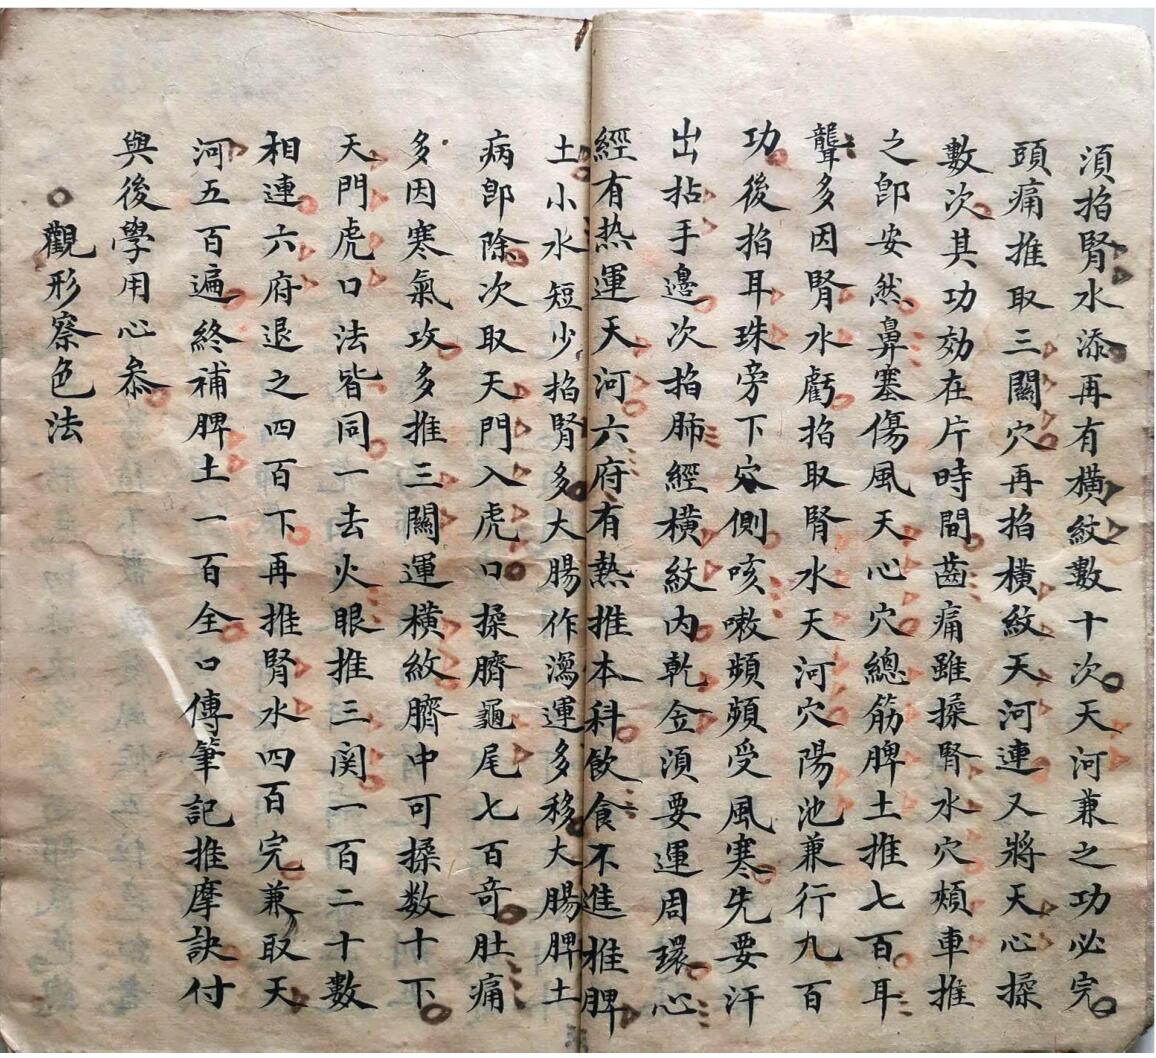 須掐腎水添再有橫紋數十次天河兼之功必完
頭痛推取三關穴再掐橫紋天河連又將天心揉
數次其功効在片時間齒痛雖揉腎水穴頰車推
之即安然鼻塞傷風天心穴總筋脾土推七百耳
聾多因腎水虧掐取腎水天河穴陽池兼行九百
功後掐耳珠旁下穴側咳嗽頻頻受風寒先要汗
出拈手邊次掐肺經橫紋內乾金須要運周環心
經有热運天河六府有熱推本科飲食不進推脾
土小水短少掐腎多大腸作瀉運多移大腸脾土
病即除次取天門入虎口揉臍龜尾七百奇肚痛
多因寒氣攻多推三關運橫紋臍中可揉数十下
天門虎口法皆同一去火眼推三関一百二十數
相連六府退之四百下再推腎水四百完兼取天
河五百遍終補脾土一百全口傳筆記推摩訣付
與後學用心叅
觀形察色法